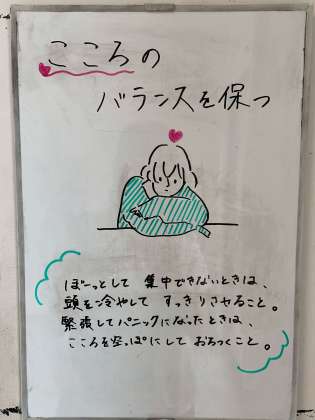 こころの
バランスを保つ
ぼーっとして 集中できないときは、
頭を冷やして すっきりさせること。
緊張してパニックになったときは、
こころを空っぽにして おちつくこと。